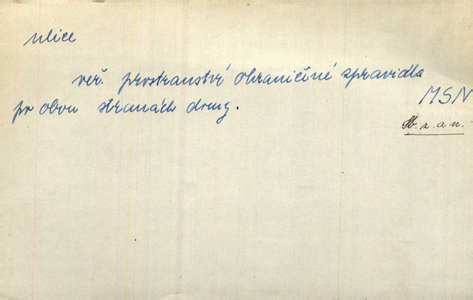 ulice
veř. prostranství ohraničené zpravidla
po obou stranách domy.
MSN
Ob. z. a n.